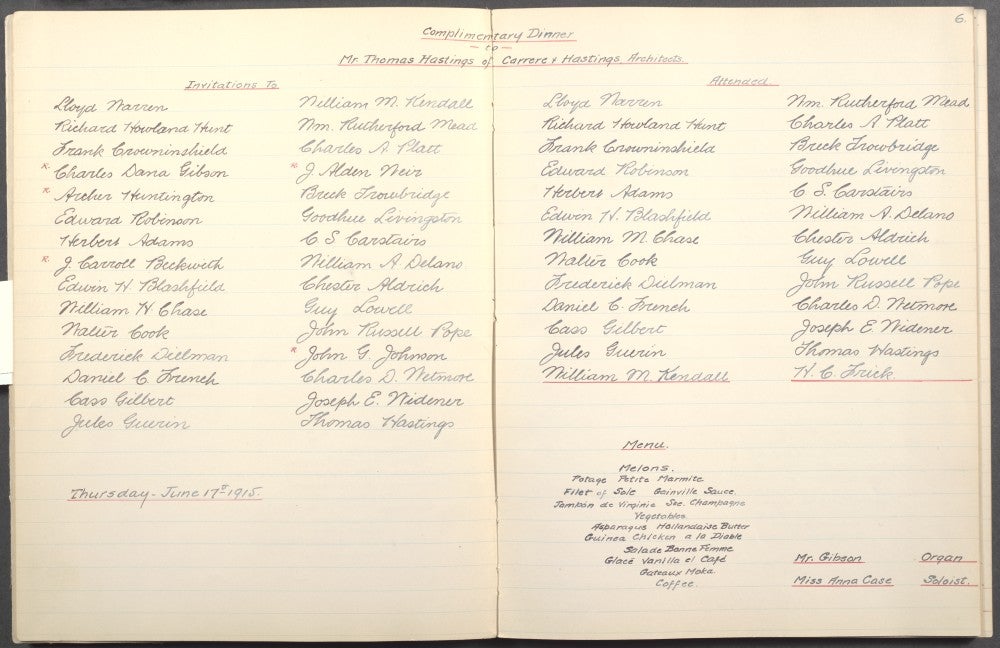 6.
Complimentary Dinner
- to -
Mr. Thomas Hastings of Carrere & Hastings Architects.
Invitations To
Lloyd Warren
Richard Howland Hunt
Frank Crowninshield
x. Charles Dana Gibson
x. Archer Huntington
Edward Robinson
Herbert Adams
x. J. Carroll Beckwith
Edwin H Blashfield
William H Chase
Walter Cook
Frederick Dielman
Daniel C. French
Cass Gilbert
Jules Guerin
William M. Kendall
Wm. Rutherford Mead
Charles A. Platt
x J. Alden Weir
Breck Trowbridge
Goodhue Livingston
C S Carstairs
William A Delano
Chester Aldrich
Guy Lowell
John Russell Pope
x John G. Johnson
Charles D. Wetmore
Joseph E. Widener
Thomas Hastings
Thursday - June 17th 1915.
Attended
Lloyd Warren
Richard Howland Hunt
Frank Crowninshield
Edward Robinson
Herbert Adams
Edwin H. Blashfield
William M. Chase
Walter Cook
Frederick Dielman
Daniel C. French
Cass Gilbert
Jules Guerin
William M. Kendall
Wm. Rutherford Mead
Charles A Platt
Breck Trowbridge
Goodhue Livingston
C. S. Carstairs
William A. Delano
Chester Aldrich
Guy Lowell
John Russell Pope
Charles D. Wetmore
Joseph E. Widener
Thomas Hastings
H. C. Frick
Menu.
Melons.
Potage Petite Marmite
Filet of Sole Gainville Sauce
Jambon de Virginie Sce. Champagne
Vegetables
Asparagus Hollandaise Butter
Guinea Chicken a la Diable
Salade Bonne Femme
Glacé Vanilla et Café
Gateaux Moka.
Coffee.
Mr. Gibson Organ
Miss Anna Case Soloist.